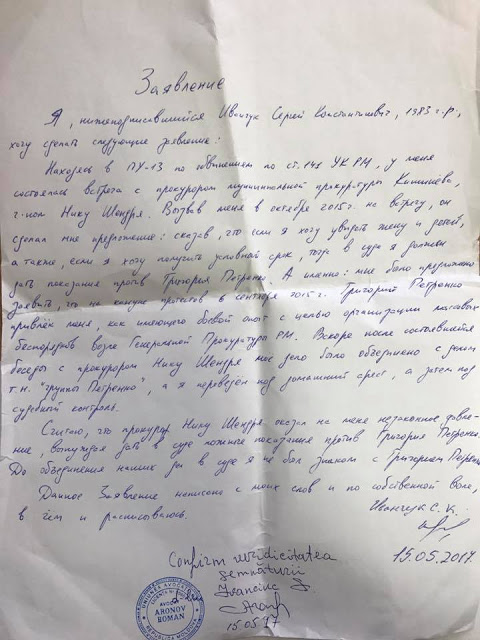 Заявление
Я, нижеподписавшийся Иванчук Сергей Константинович, 1983 г.р.,
хочу сделать следующее заявление:
Находясь в ПУ-13 по обвинениям по ст. 141 УК РМ, у меня
состоялась встреча с прокурором муниципальной прокуратуры Кишинева,
г-ном Нику Шендря. Вызвав меня в октябре 2015г. на встречу, он
сделал мне предложение: сказав, что если я хочу увидеть жену и детей,
а также, если я хочу получить условный срок, тогда в суде я должен
дать показания против Григория Петренко. А именно: мне было предложено
заявить, что на кануне протестов в сентябре 2015 г. Григорий Петренко
привлёк меня, как имеющего боевой опыт с целью организации массовых
беспорядков возле Генеральной Прокуратуры РМ. Вскоре после состоявшейся
беседы с прокурором Нику Шендря моё дело было объединено с делом
т.н. "группы Петренко", а я переведён под домашний арест, а затем под
судебный контроль.
Считаю, что прокурор Нику Шендря оказал на меня незаконное давле-
ние, вынуждая дать в суде ложные показания против Григория Петренко.
До объединения наших дел в суде я не был знаком с Григорием Петренко
Данное Заявление написано с моих слов и по собственной воле,
в чём и расписываюсь.
Иванчук С.К.
15.05.2017.
Confirm veridicitatea
semnăturii
Ivanciuc S.
15.05 17
UNIUNEA AVOCAȚILOR
AVOCAT
ARONOV
ROMAN
REPUBLICA MOLDOVA